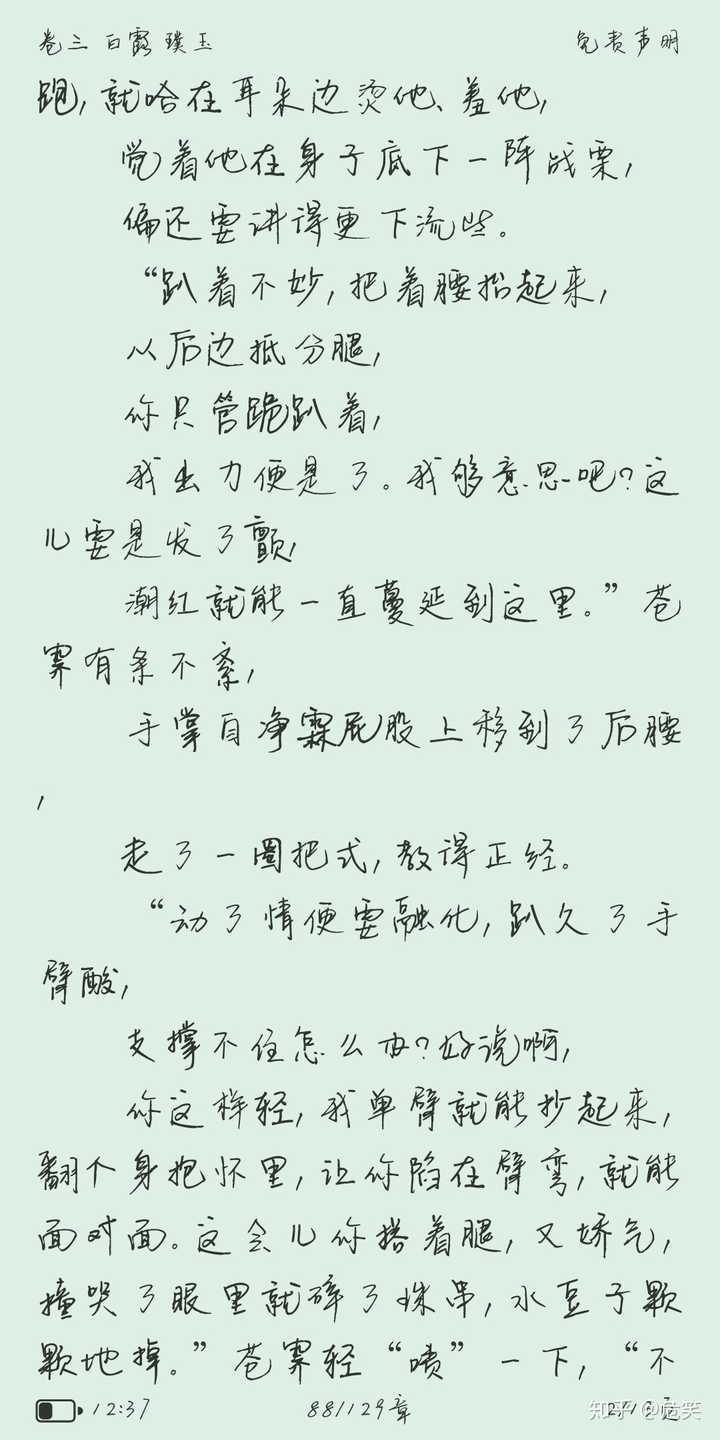 卷三 白露 璞玉
免责声明
跑,就哈在耳朵边烫他、羞他,
觉着他在身子底下一阵战栗,
偏还要讲得更下流些。
“趴着不妙,把着腰抬起来,
从后边抵分腿,
你只管跪趴着,
我出力便是了。我够意思吧?这
儿要是发了颤,
潮红就能一直蔓延到这里。”苍
霁有条不紊,
手掌自净霖屁股上移到了后腰
,
走了一圈把式,教得正经。
“动了情便要融化,趴久了手
臂酸,
支撑不住怎么办?好说啊,
你这样轻,我单臂就能抄起来,
翻个身抱怀里,让你陷在臂弯,就能
面对面。这会儿你搭着腿,又娇气,
撞哭了眼里就碎了珠串,水豆子颗
颗地掉。”苍霁轻“啧”一下,“不
12:37
88/129章
知乎